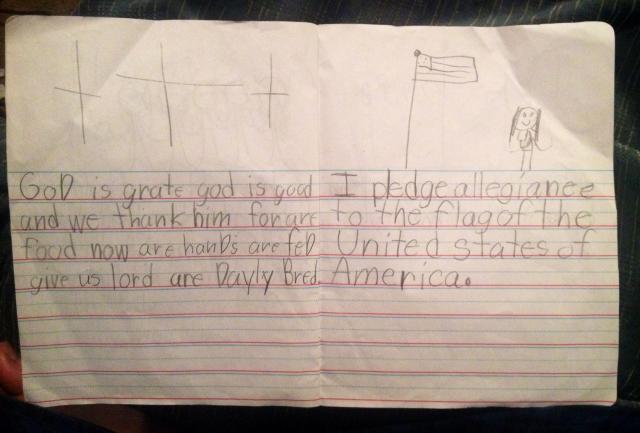 GoD is grate god is good
and we thank him for are
food now are hanD's are feD
give us lord are Dayly Bred.
I pledge allegianee
to the flag of the
United states of
America.